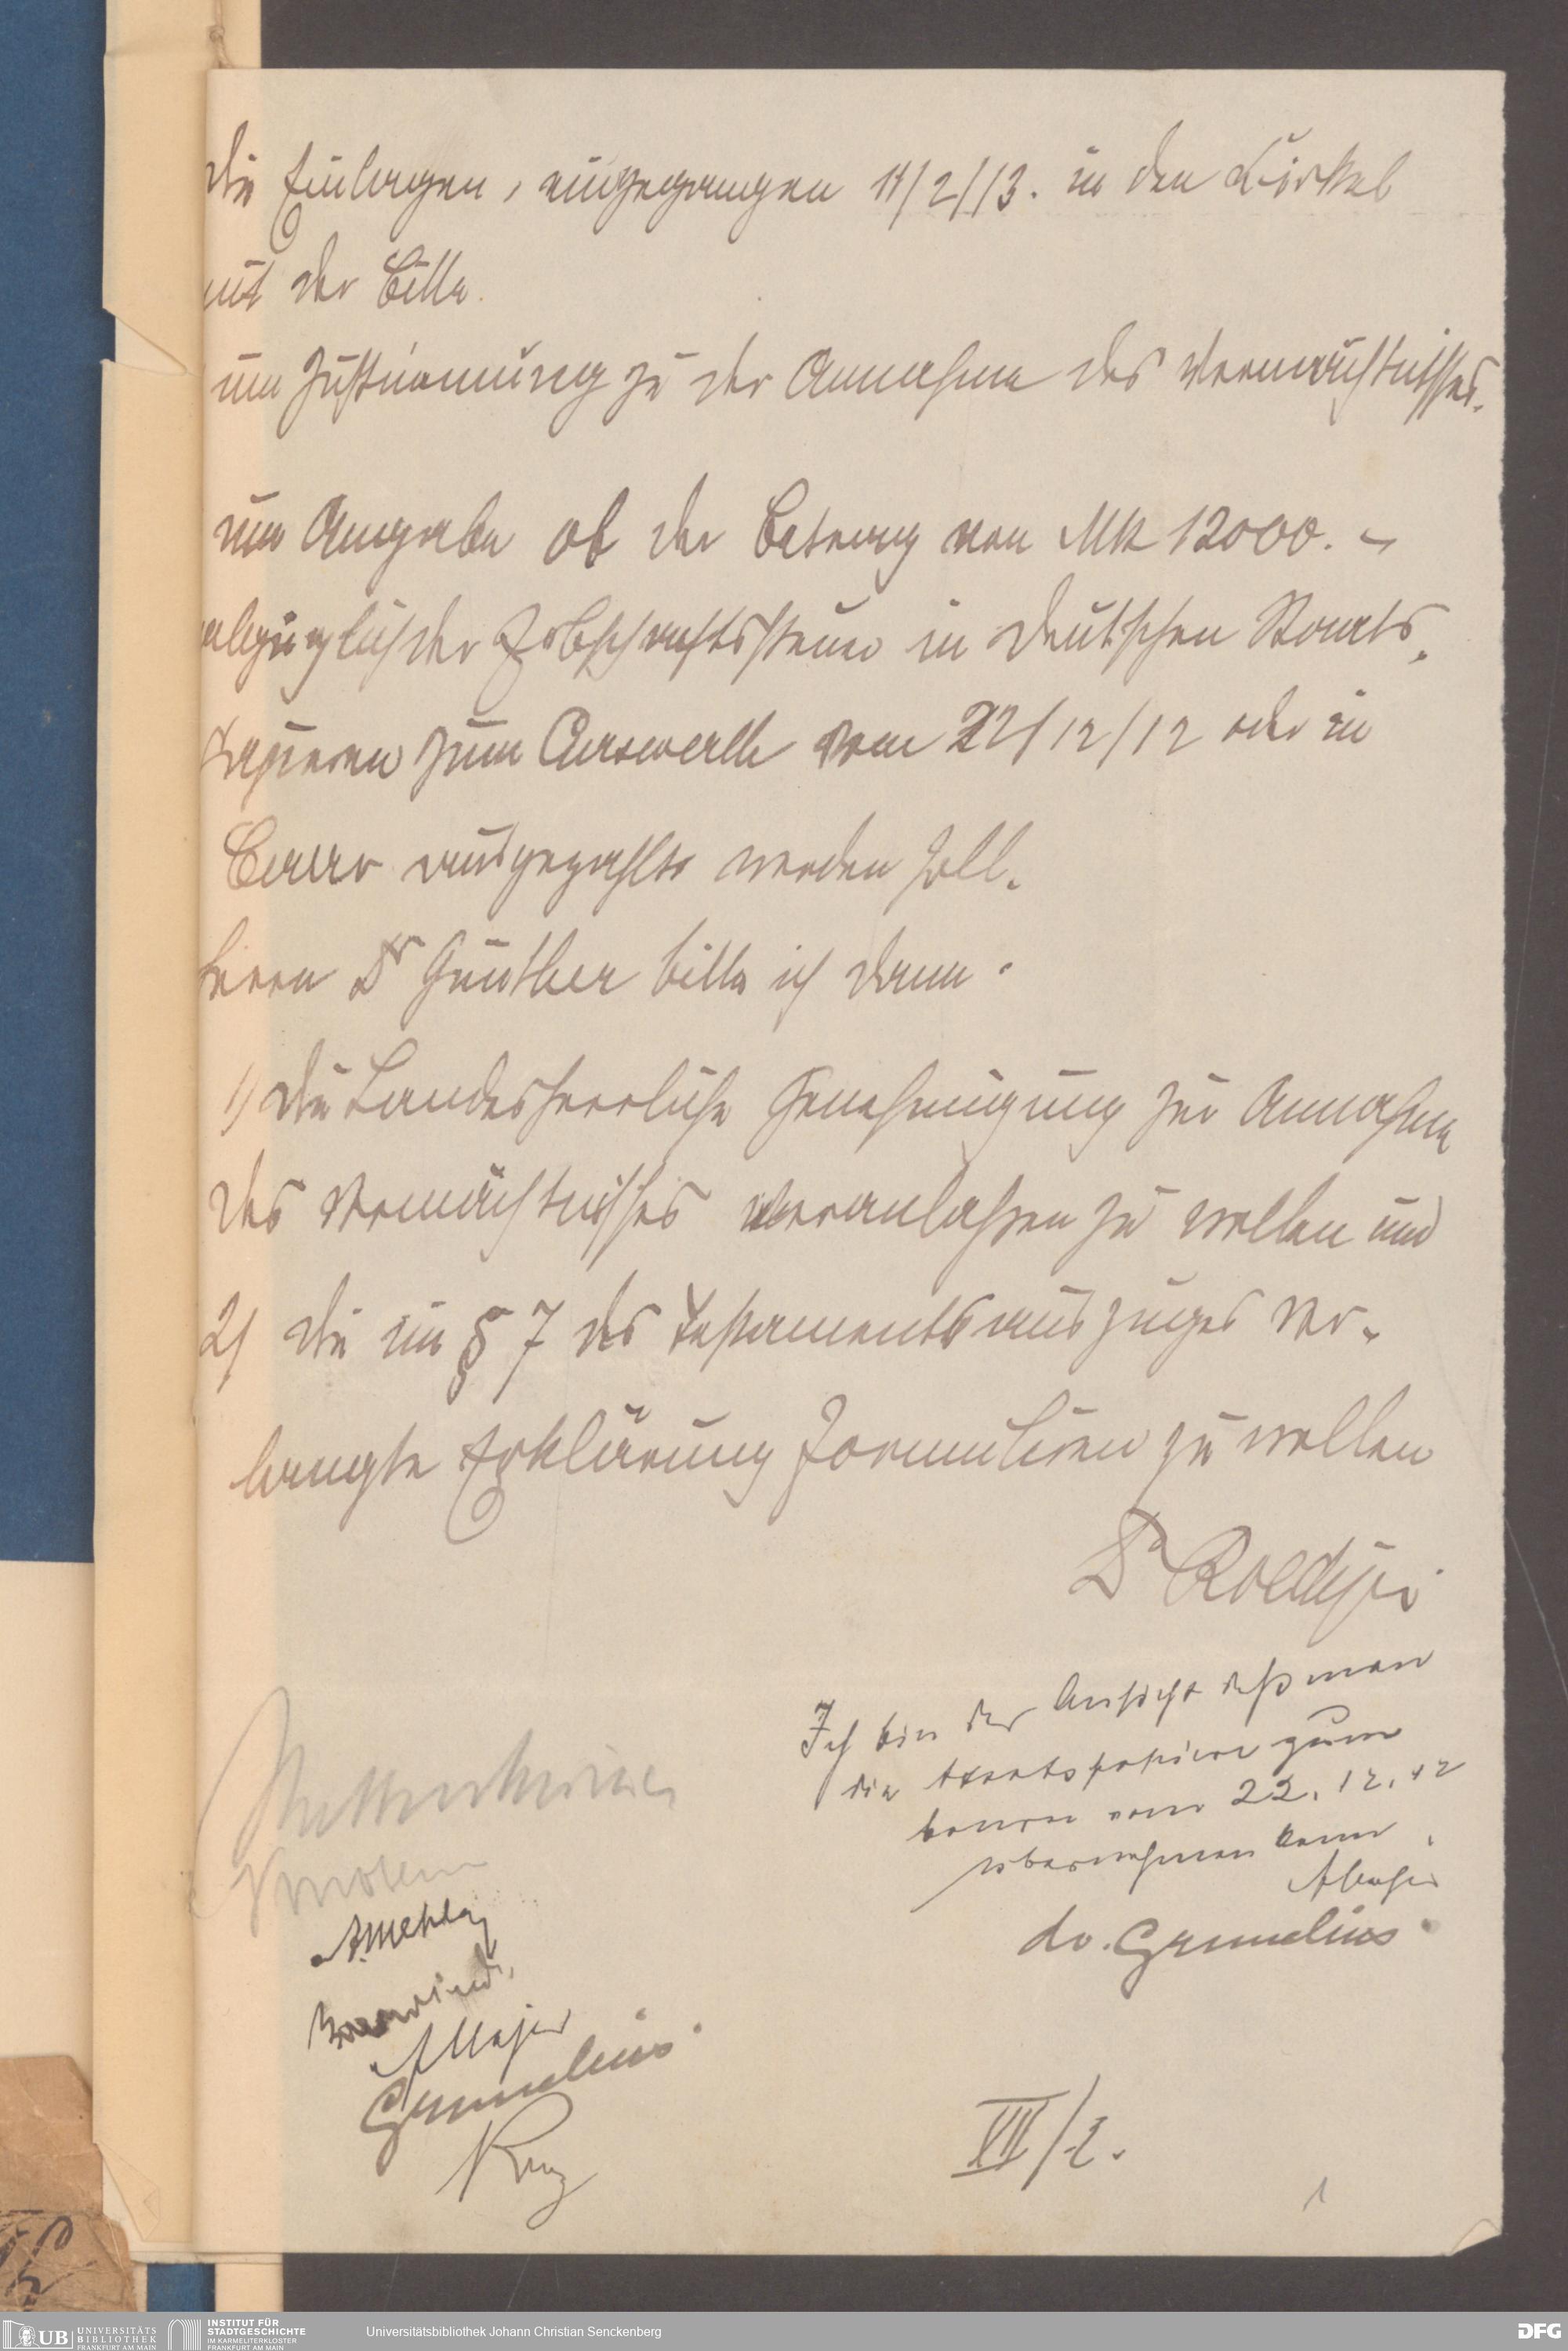 die Einlagen, eingegangen 11/2/13. in den Zirkel
mit der Bitte
um Zustimmung zu der Annahme des Vermächtnisses.
um Angabe ob der Betrag von Mk 12000.-
abzüglich der Erbschaftssteuer in deutschen Staats-
papieren zum Curswerth vom 22/12/12 oder in
Baar ausgezahlt werden soll.
Herrn Dr Günther bitte ich dann.
1) die Landesherrliche Genehmigung zur Annahme
des Vermächtnisses veranlassen zu wollen und
2) die im § 7 des Testamentsauszuges ver-
langte Erklärung formuliren zu wollen
Dr Roediger
Ich bin der Ansicht daß man
die Staatspapiere zum
vom 22.12.12
übernehmen kann.
A Majer
do. Grunelius
A Majer
Grunelius
VII/2.
UB UNIVERSITÄTS
BIBLIOTHEK
FRANKFURT AM MAIN
INSTITUT FÜR
STADTGESCHICHTE
IM KARMELITERKLOSTER
FRANKFURT AM MAIN
Universitätsbibliothek Johann Christian Senckenberg
DFG